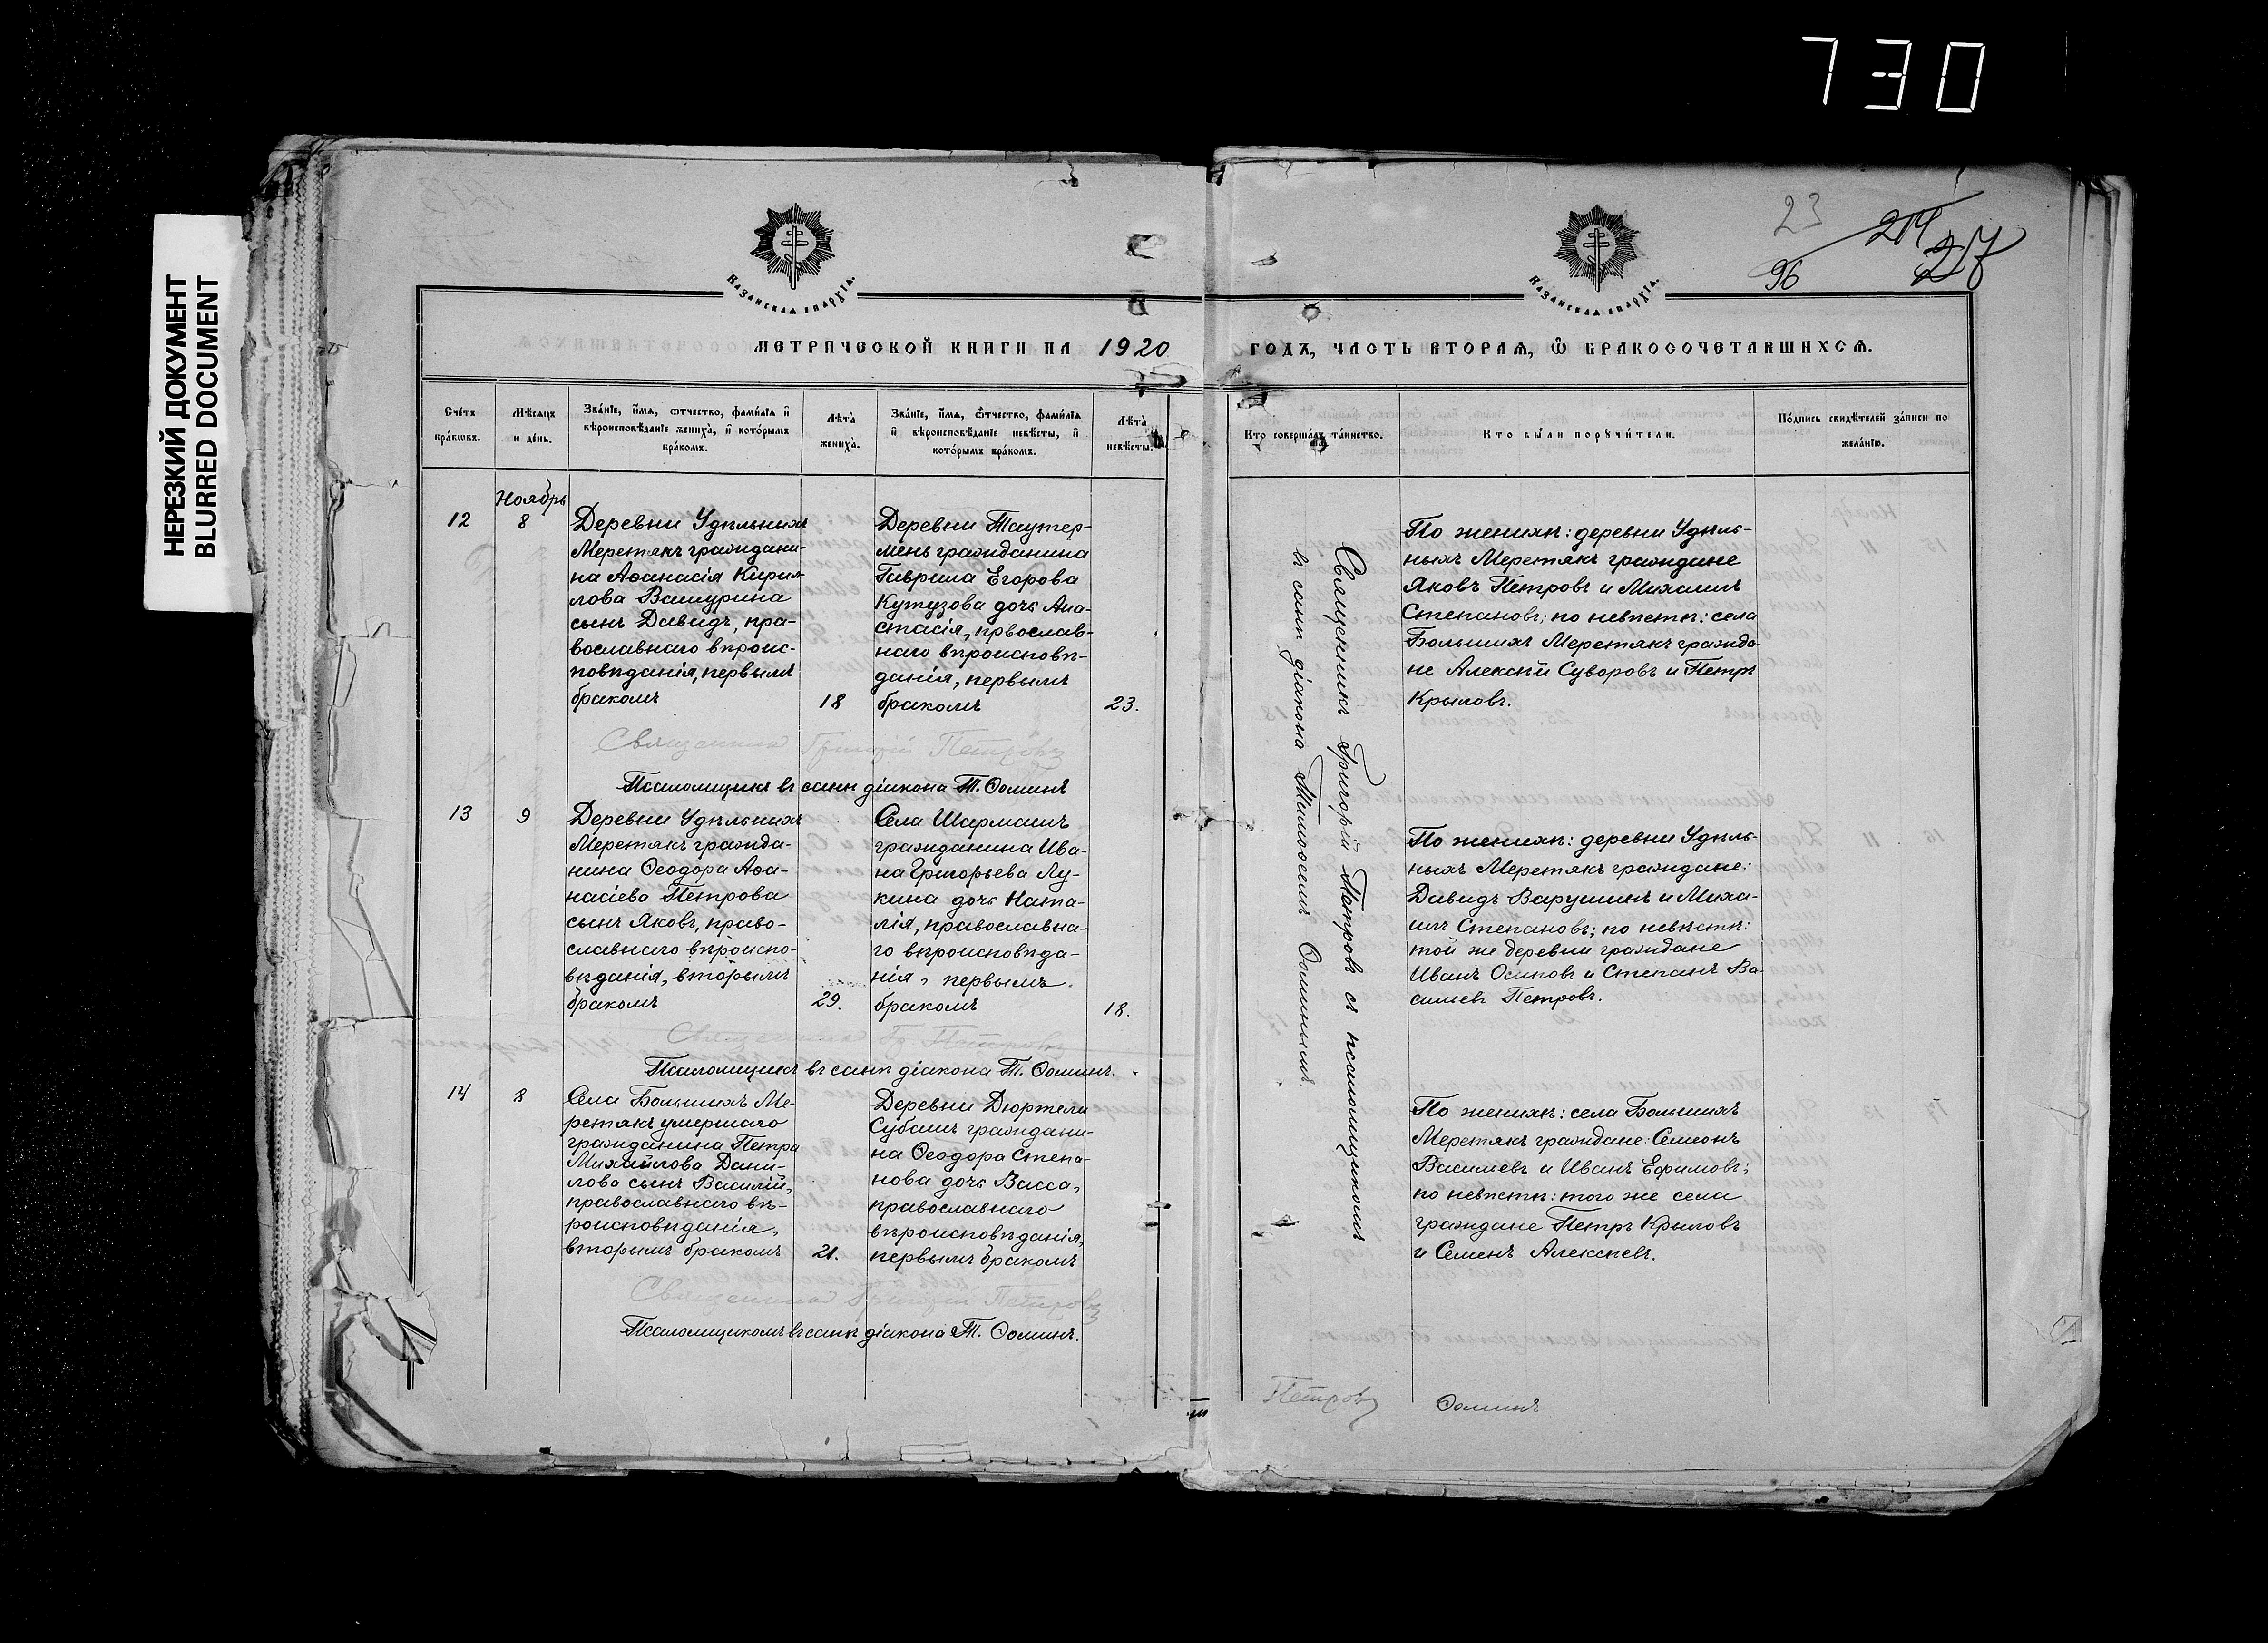 730
НЕРЕЗКИЙ ДОКУМЕНТ
BLURRED DOCUMENT
23
96
214
217
Казанская епархїа.
Казанская епархїа.
МЕТРИЧЕСКОЙ КНИГИ НА 1920 ГОДЪ, ЧАСТЬ ВТОРАЯ, Ѽ БРАКОСОЧЕТАВШИХСЯ.
Сче́тъ бра́кѡвъ.
Мѣ́сяцъ и де́нь.
Зва́нїе, и́мя, ѻтчество, фами́лїя и вѣроисповѣ́данїе жениха̀, и҆ кото́рымъ бра́комъ.
Лѣта̀ жениха̀.
Зва́нїе, и́мя, ѻ҆́тчество, фами́лїя и҆ вѣроисповѣ́данїе невѣ́сты, и҆ кото́рымъ бра́комъ.
Лѣта̀ невѣ́сты.
Кто соверша́лъ та́инство.
Кто бы́ли порꙋчи́тели.
По́дпись свидѣ́телей за́писи по жела́нїю.
Ноябрь
12
8
Деревни Удѣльныхъ
Меретякъ граждани-
на Аѳанасія Кирил-
лова Вашурина
сынъ Давидъ, пра-
вославнаго вѣроис-
повѣданія, первымъ
бракомъ
18
Деревни Таутер-
мень гражданина
Гаврила Егорова
Кутузова дочь Ана-
стасія, првослав-
наго вѣроисповѣ-
данія, первымъ
бракомъ
23.
По женихѣ: деревни Удѣль-
ныхъ Меретякъ граждане
Яковъ Петровъ и Михаилъ
Степановъ; по невѣстѣ: села
Большихъ Меретякъ гражда-
не Алексѣй Суворовъ и Петръ
Крыловъ.
Священникъ Григорій Петровъ
Псаломщикъ въ санѣ діакона Т. Ѳоминъ
13
9
Деревни Удѣльныхъ
Меретякъ гражда-
нина Ѳеодора Аѳа-
насіева Петрова
сынъ Яковъ, право-
славнаго вѣроиспо-
вѣданія, вторымъ
бракомъ
29.
Села Шармашъ
гражданина Ива-
на Григорьева Лу-
кина дочь Ната-
лія, православна-
го вѣроисповѣда-
нія, первымъ
бракомъ
18.
По женихѣ: деревни Удѣль-
ныхъ Меретякъ граждане:
Давидъ Варушинъ и Миха-
илъ Степановъ; по невѣстѣ:
той же деревни граждане
Иванъ Осиповъ и Степанъ Ва-
сильевъ Петровъ.
Священникъ Гр. Петровъ
Псаломщикъ въ санѣ діакона Т. Ѳоминъ.
14
8
Села Большихъ Ме-
ретякъ умершаго
гражданина Петра
Михайлова Дани-
лова сынъ Василій,
православнаго вѣ-
роисповѣданія,
вторымъ бракомъ
21.
Деревни Дюртели
Субашъ граждани-
на Ѳеодора Степа-
нова дочь Васса,
православнаго
вѣроисповѣданія,
первымъ бракомъ
По женихѣ: села Большихъ
Меретякъ граждане: Семеонъ
Васильевъ и Иванъ Ефимовъ;
по невѣстѣ: того же села
граждане Петръ Крыловъ
и Семенъ Алексѣевъ.
Священникъ Григорій Петровъ
Псаломщикомъ въ санѣ діакона Т. Ѳоминъ.
Священникъ Григорій Петровъ съ псаломщикомъ
въ санѣ діакона Тимоѳеемъ Ѳоминымъ.
Петровъ
Ѳоминъ